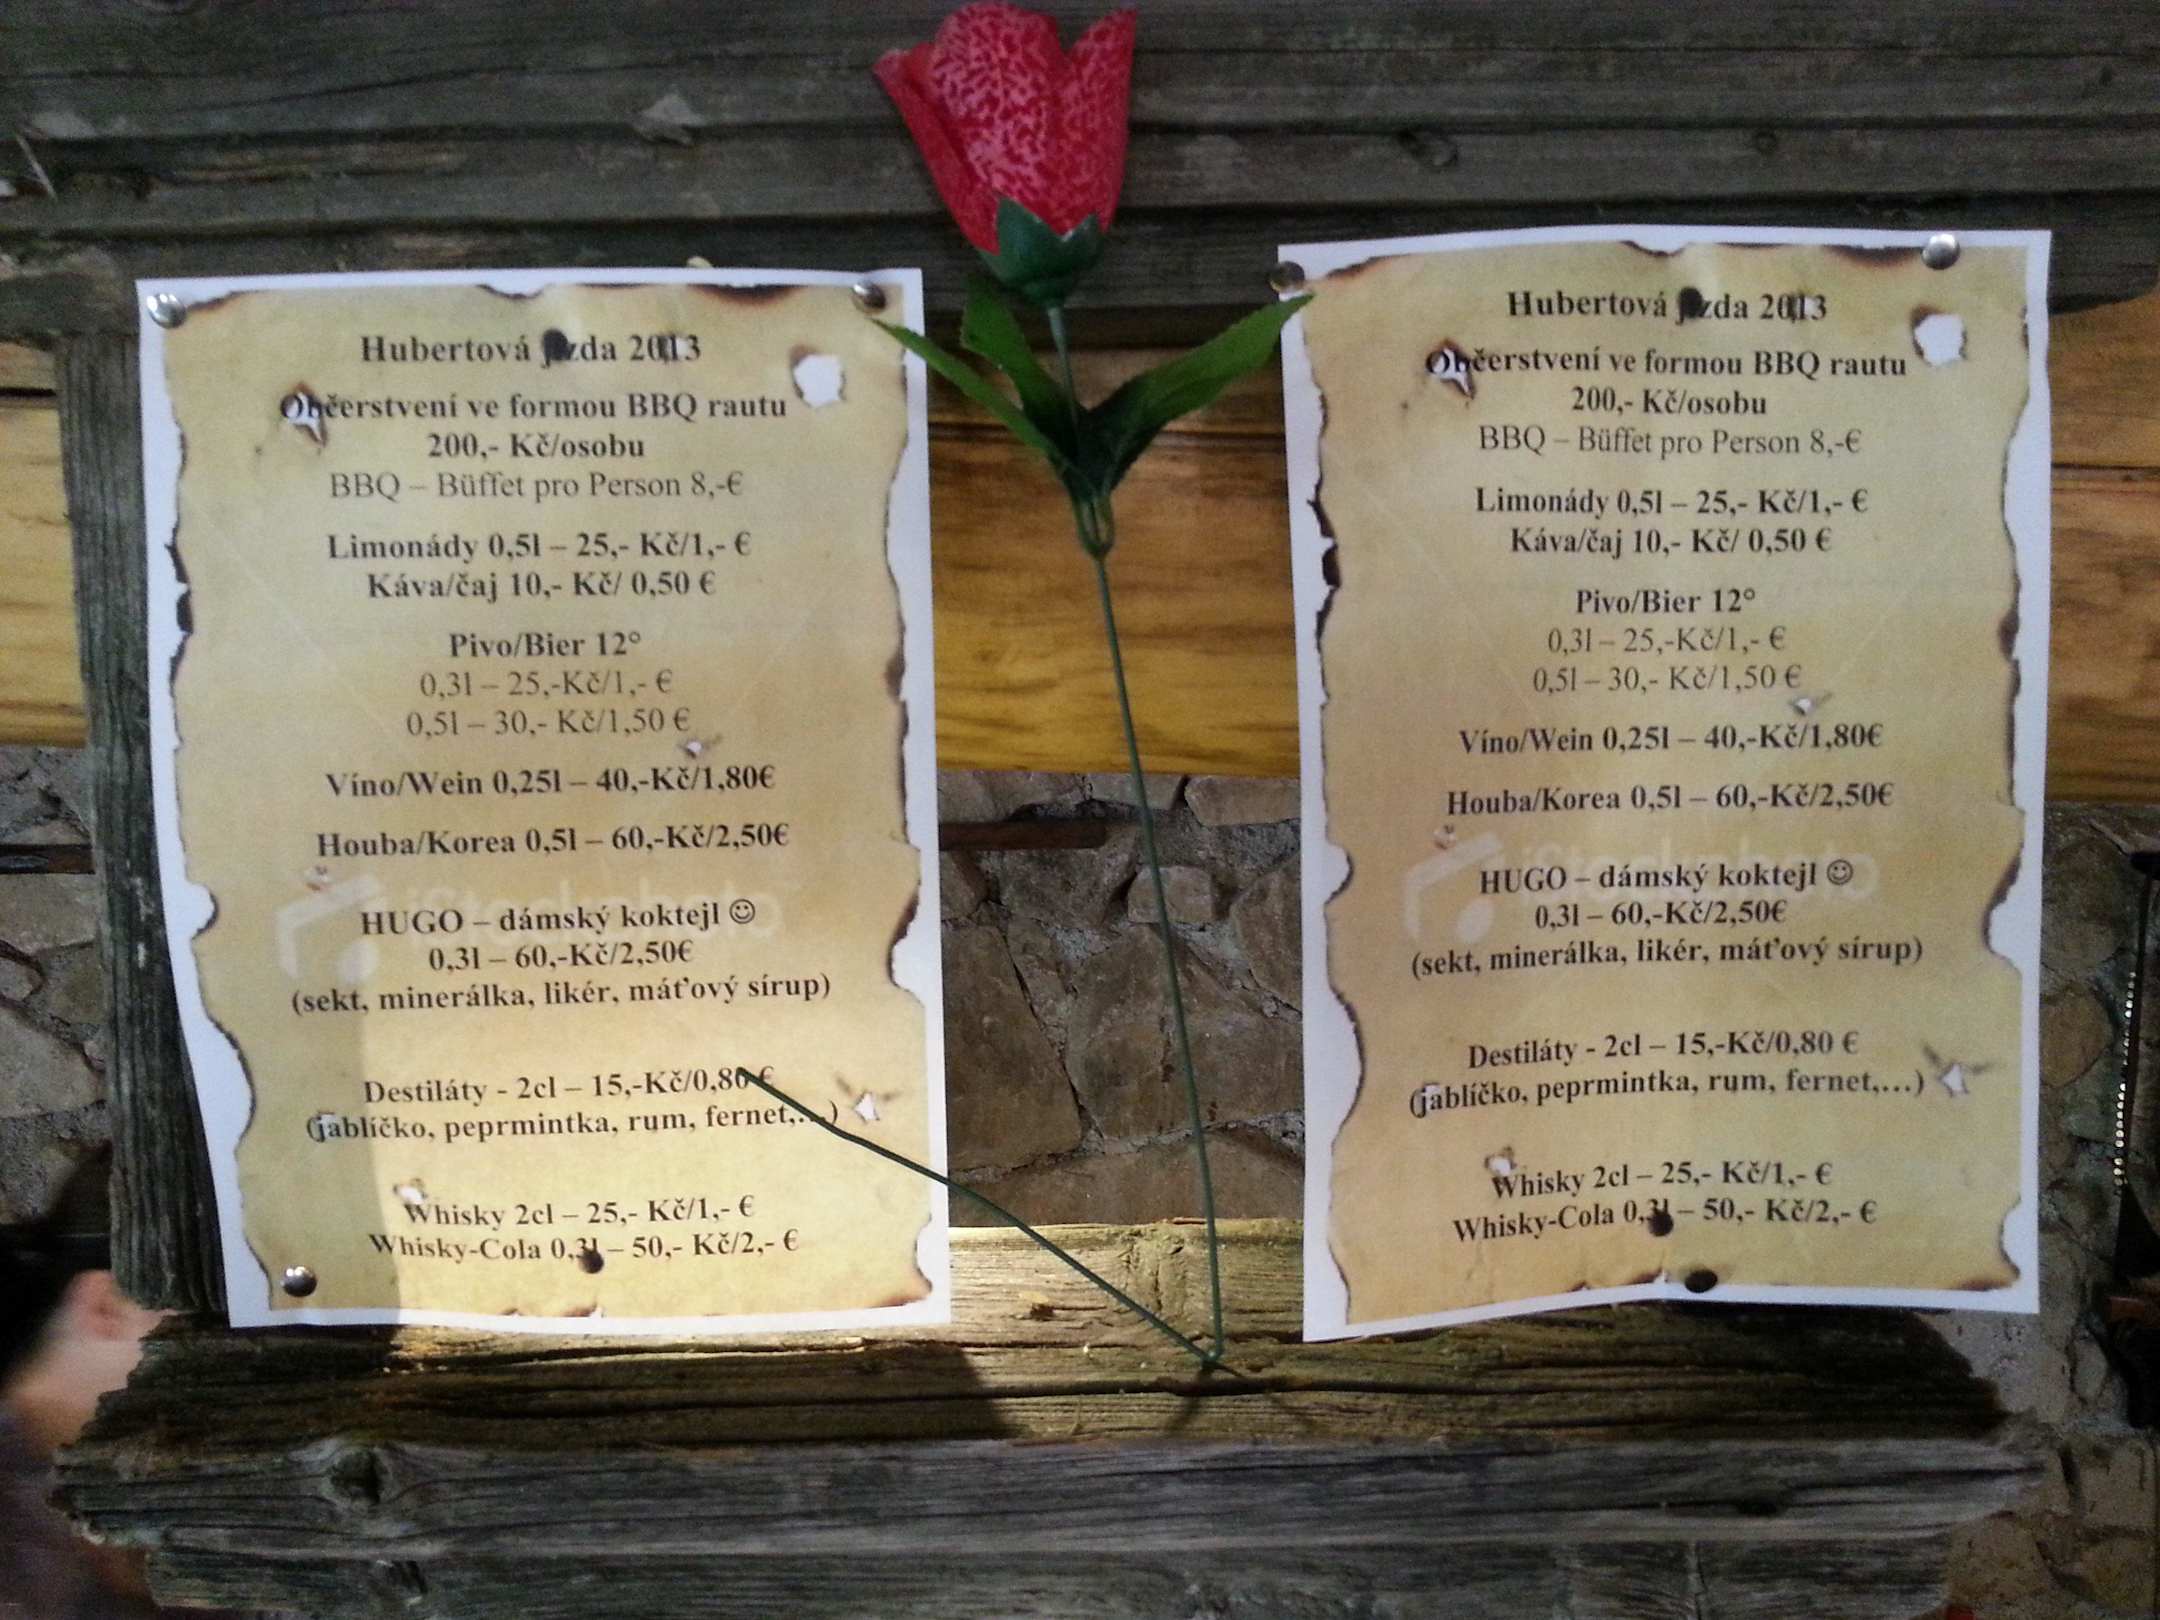 Hubertová jízda 2013
Občerstvení ve formou BBQ rautu
200,- Kč/osobu
BBQ – Büffet pro Person 8,-€
Limonády 0,5l – 25,- Kč/1,- €
Káva/čaj 10,- Kč/ 0,50 €
Pivo/Bier 12°
0,3l – 25,-Kč/1,- €
0,5l – 30,- Kč/1,50 €
Víno/Wein 0,25l – 40,-Kč/1,80€
Houba/Korea 0,5l – 60,-Kč/2,50€
HUGO – dámský koktejl ☺
0,3l – 60,-Kč/2,50€
(sekt, minerálka, likér, máťový sírup)
Destiláty - 2cl – 15,-Kč/0,80 €
(jablíčko, peprmintka, rum, fernet,…)
Whisky 2cl – 25,- Kč/1,- €
Whisky-Cola 0,3l – 50,- Kč/2,- €
Hubertová jízda 2013
Občerstvení ve formou BBQ rautu
200,- Kč/osobu
BBQ – Büffet pro Person 8,-€
Limonády 0,5l – 25,- Kč/1,- €
Káva/čaj 10,- Kč/ 0,50 €
Pivo/Bier 12°
0,3l – 25,-Kč/1,- €
0,5l – 30,- Kč/1,50 €
Víno/Wein 0,25l – 40,-Kč/1,80€
Houba/Korea 0,5l – 60,-Kč/2,50€
iStockphoto
HUGO – dámský koktejl ☺
0,3l – 60,-Kč/2,50€
(sekt, minerálka, likér, máťový sírup)
Destiláty - 2cl – 15,-Kč/0,80 €
(jablíčko, peprmintka, rum, fernet,…)
Whisky 2cl – 25,- Kč/1,- €
Whisky-Cola 0,3l – 50,- Kč/2,- €